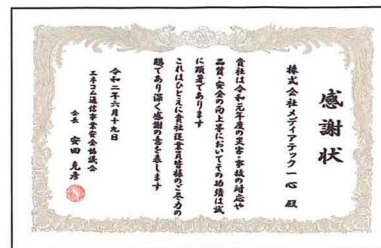 感謝状
株式会社メディアテック一心 殿
貴社は令和元年度の災害・事故の対応や
品質・安全の向上等においてその功績は誠
に顕著であります
これはひとえに貴社従業員皆様のご尽力の
賜であり深く感謝の意を表します
令和二年六月十九日
エネコム通信事業安全協議会
会長 安田 克彦